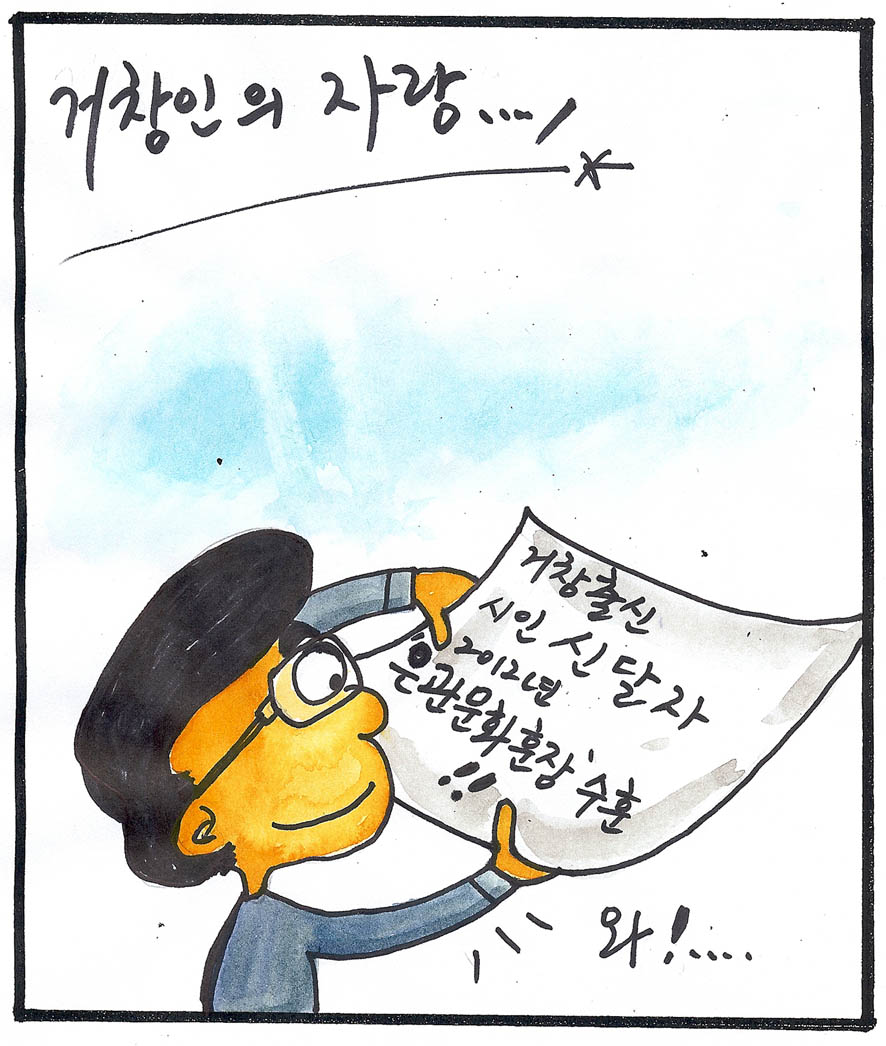 거창인의 자랑.....
거창출신
시인 신달자
2012년
'은관문화훈장' 수훈
!!
와!.....